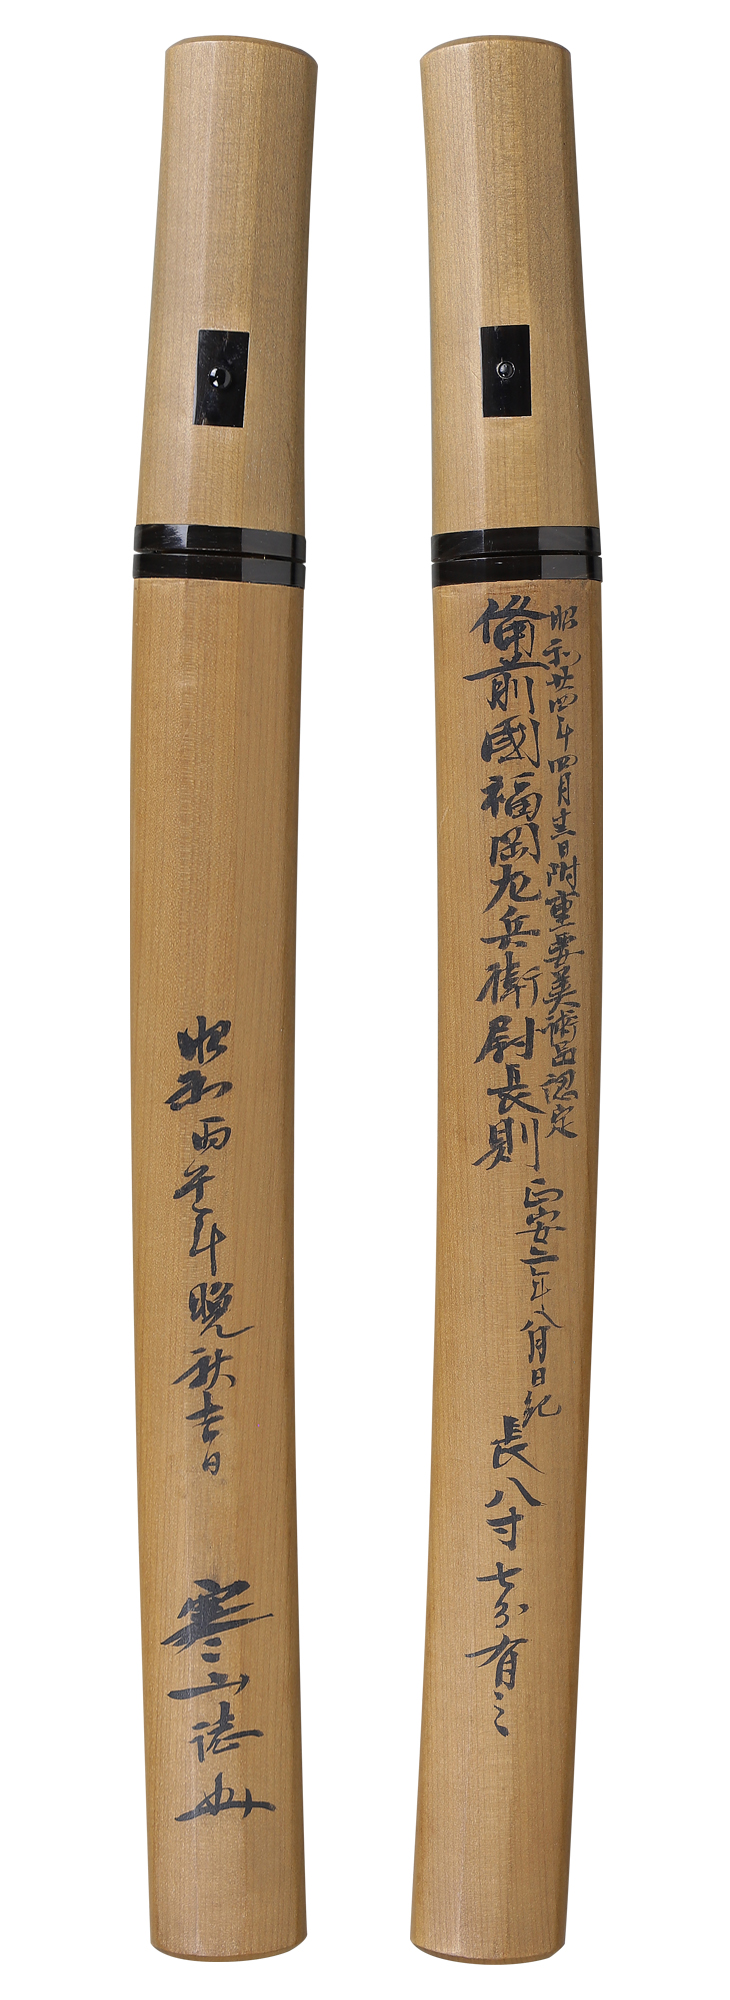 昭和廿四年四月十三日附重要美術品認定
備前國福岡左兵衛尉長則
正安二年八月日紀
長八寸七分有之
昭和丙午年晩秋吉日
寒山誌